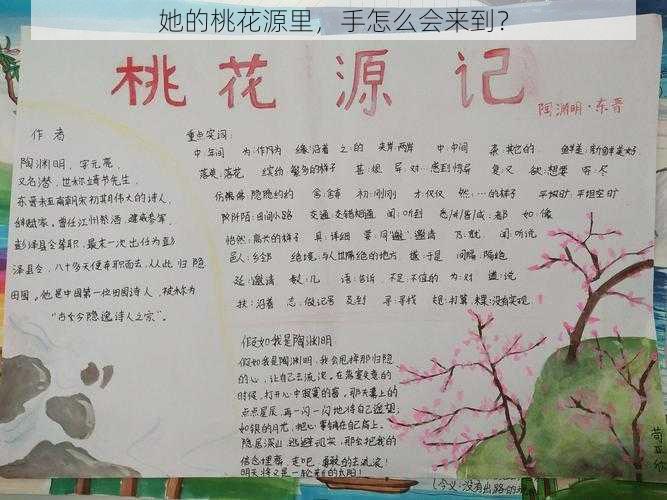 她的桃花源里，手怎么会来到？
桃花源记
陶渊明·东晋
作者
陶渊明，字元亮，
又名潜，世称靖节先生，
东晋末至南朝宋初期伟大的诗人，
辞赋家。曾任江州祭酒，建威参军，
彭泽县令等职，最末一次出任为彭
泽县令，八十多天便弃职而去，从此归隐
田园。他是中国第一位田园诗人，被称为
“古今隐逸诗人之宗”。
重点实词：
缘：沿着 之：的 夹岸：两岸 中：中间 杂：其它的
落英：落花 缤纷：繁多的样子 甚：很 异：对…感到惊异 复：又 欲：想要 穷：尽
仿佛：隐隐约约 舍：舍弃 初：刚刚 才：仅仅 然：…的样子 平旷：平坦空旷
阡陌：田间小路 交通：交错相通 闻：听到 悉/咸/皆：都 如：像
怡然：高兴的样子 具：详细 要：同“邀”邀请 乃：就 闻：听说
邑人：乡邻 绝境：与人世隔绝的地方 遂：于是 间隔：隔绝
延：邀请 数：几 语：告诉 不足：不值的 为：对 道：说
扶：沿着 志：做记号 及：到 寻：寻找 规：打算 果：没有实现
假如我是陶渊明
假如我是陶渊明，我会甩掉那归隐
的心，让自己去流浪。在落寞失意的
时候，打开心中寂寞的窗。那天幕上的
点点星辰，再一闪一闪地将自己遥望，
如银的月光，把心事铺在自己肩上。
隐居深山，逃避现实，那会把我的
信念埋葬，走吧，勇敢的去流浪！
明天将又是一轮美的太阳！
（今义：没有出路的